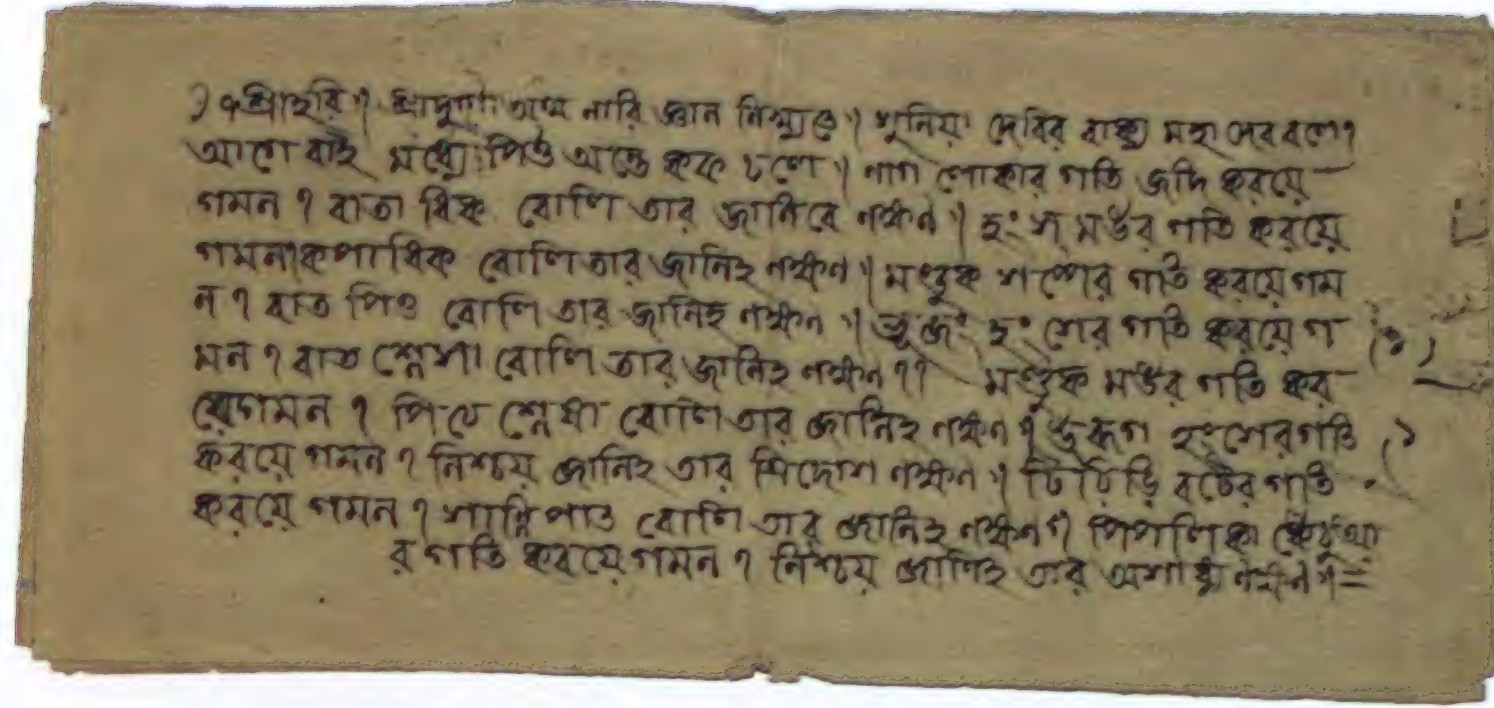 ১ ৭শ্রীহরি৭ শ্রীদুর্গা অথ নারি জ্ঞান লিক্ষ্যতে৭। শুনিয়া দেবির বাক্য মহাদেব বলে৭
আগে বাই মধ্যে পিত্ত অন্তে কফ চলে৭। নাগ লোকার গতি জদি করয়ে
গমন ৭ বাতা ধিক্ক রোগি তার জানিবে নক্ষন৭। হংশ মঙর গতি করয়ে
গমন৭কপাধিক রোগি তার জানিহ নক্ষন৭। মণ্ডুক শপের গতি করয়ে গম
ন ৭ বাত পিত্ত রোগি তার জানিহ নক্ষন ৭। ভূজং হংশের গতি করয়ে গ
মন ৭ বাত শ্লেশা রোগি তার জানিহ নক্ষন ৭৭ মণ্ডুক মঙর গতি কর
য়েগমন ৭ পিত্যে শ্লেষা রোগি তার জানিহ নক্ষন ৭ হংশেরগতি
করয়ে গমন ৭ নিশ্চয় জানিহ তার ত্রিদোশ নক্ষন৭। টিটিড়ি বটের গতি
করয়ে গমন ৭ শান্নিপাত রোগি তার জানিহ নক্ষন৭। পিপালিকা
র গতি করয়ে গমন ৭ নিশ্চয় জানিহ তার অশাধ্য নক্ষন৭=